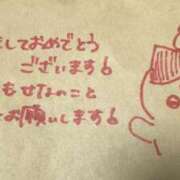 しておめでとう
ございます
もせなのこと
お願いします